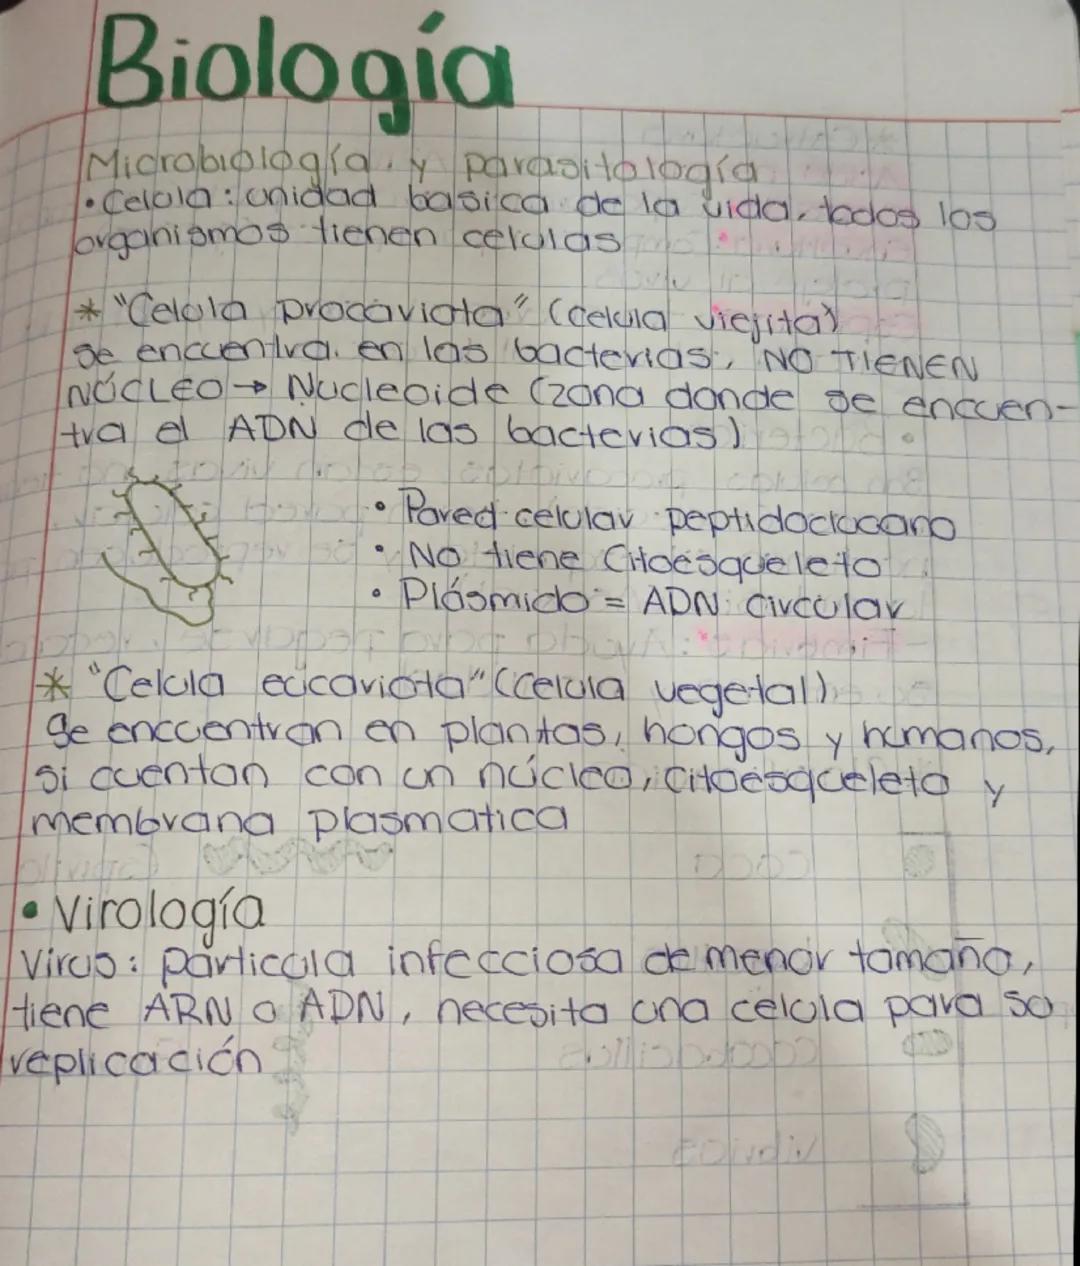 Biología
Microbiología y parasitología
• Celula: unidad basica de la vida, todos los
organismos tienen celulas
* "Celula procaviota" (celula viejita)
Se encuentra en las bacterias, NO TIENEN
NÚCLEO → Nucleoide (zona donde se encuen-
tra el ADN de las bacterias)
• Pared celular peptidoclucano
• No tiene Citoesqueleto
• Plásmido = ADN circular
* "Celula eucaviota" (celula vegetal)
Se encuentran en plantas, hongos y humanos,
si cuentan con un núcleo, citoesqueleto y
membrana plasmatica
• Virología
Virus: particula infecciosa de menor tamaño,
tiene ARN o ADN, necesita una celula para su
replicación
cocos
cocobacillos
vibrios